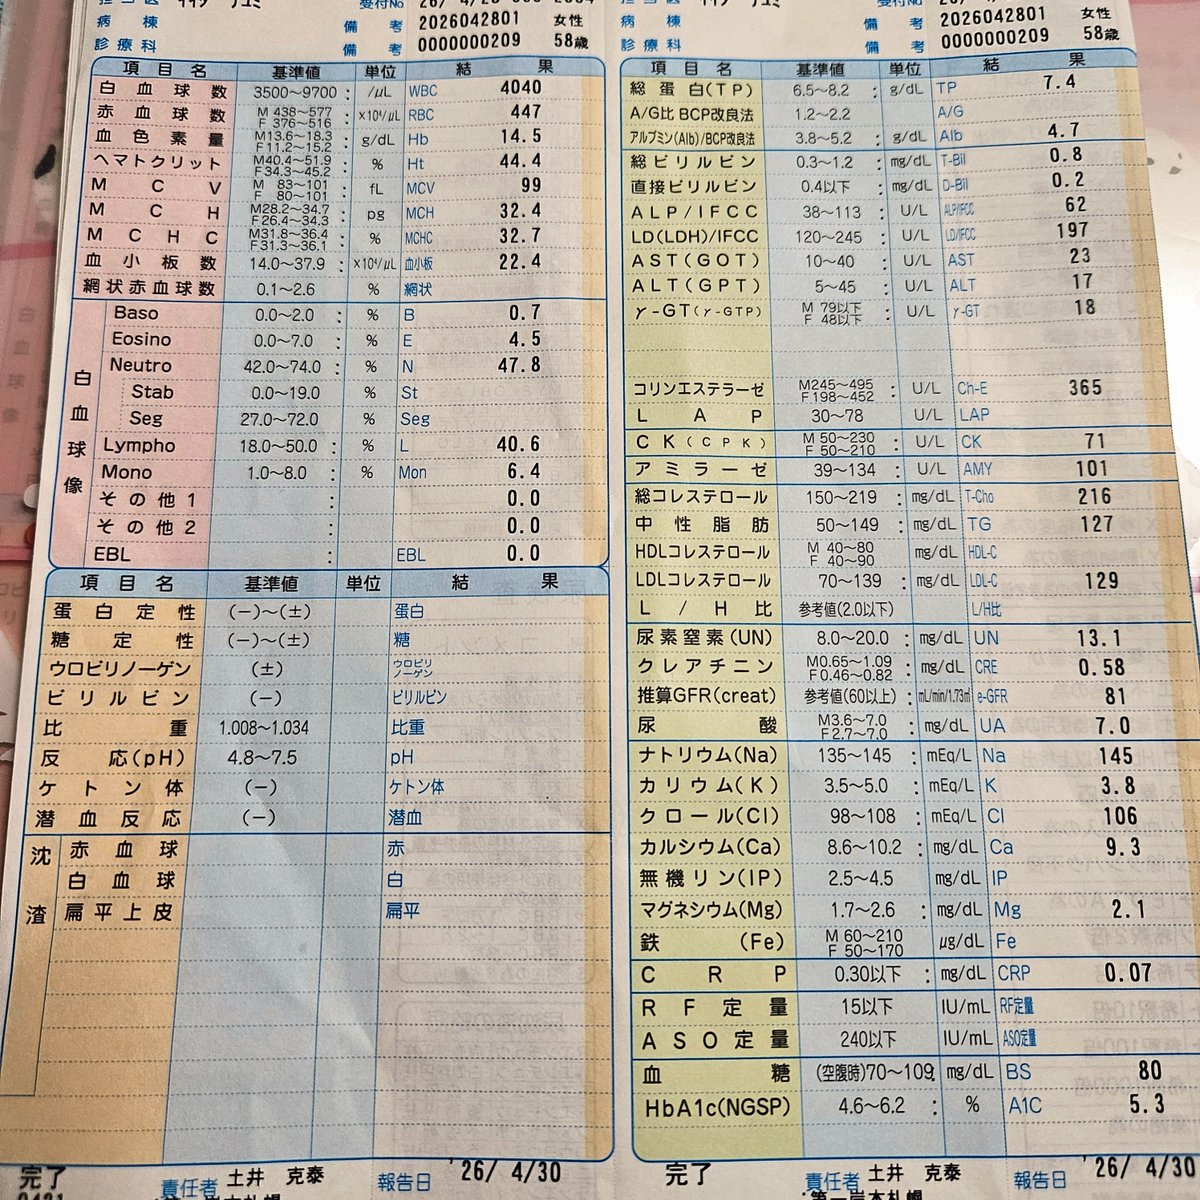 病棟 備考 2026042801 女性
診療科 備考 0000000209 58歳
項目名 基準値 単位 結果
白血球数 3500〜9700 : /μL WBC 4040
赤血球数 M 438〜577 F 376〜516 : ×10⁴/μL RBC 447
血色素量 M13.6〜18.3 F11.2〜15.2 : g/dL Hb 14.5
ヘマトクリット M40.4〜51.9 F34.3〜45.2 : % Ht 44.4
MCV M 83〜101 F 80〜101 : fL MCV 99
MCH M28.2〜34.7 F26.4〜34.3 : pg MCH 32.4
MCHC M31.8〜36.4 F31.3〜36.1 : % MCHC 32.7
血小板数 14.0〜37.9 : ×10⁴/μL 血小板 22.4
網状赤血球数 0.1〜2.6 % 網状
白血球像
Baso 0.0〜2.0 : % B 0.7
Eosino 0.0〜7.0 : % E 4.5
Neutro 42.0〜74.0 : % N 47.8
Stab 0.0〜19.0 % St
Seg 27.0〜72.0 % Seg
Lympho 18.0〜50.0 : % L 40.6
Mono 1.0〜8.0 : % Mon 6.4
その他1 : 0.0
その他2 : 0.0
EBL : EBL 0.0
項目名 基準値 単位 結果
蛋白定性 (−)〜(±) 蛋白
糖定性 (−)〜(±) 糖
ウロビリノーゲン (±) ウロビリノーゲン
ビリルビン (−) ビリルビン
比重 1.008〜1.034 比重
反応(pH) 4.8〜7.5 pH
ケトン体 (−) ケトン体
潜血反応 (−) 潜血
沈渣
赤血球 赤
白血球 白
扁平上皮 扁平
完了 責任者 土井 克泰 報告日 '26/ 4/30
病棟 備考 2026042801 女性
診療科 備考 0000000209 58歳
項目名 基準値 単位 結果
総蛋白(TP) 6.5〜8.2 : g/dL TP 7.4
A/G比 BCP改良法 1.2〜2.2 A/G
アルブミン(Alb)/BCP改良法 3.8〜5.2 : g/dL Alb 4.7
総ビリルビン 0.3〜1.2 : mg/dL T-Bil 0.8
直接ビリルビン 0.4以下 : mg/dL D-Bil 0.2
ALP/IFCC 38〜113 : U/L ALP/IFCC 62
LD(LDH)/IFCC 120〜245 : U/L LD/IFCC 197
AST(GOT) 10〜40 : U/L AST 23
ALT(GPT) 5〜45 : U/L ALT 17
γ-GT(γ-GTP) M 79以下 F 48以下 : U/L γ-GT 18
コリンエステラーゼ M245〜495 F198〜452 : U/L Ch-E 365
LAP 30〜78 U/L LAP
CK(CPK) M 50〜230 F 50〜210 : U/L CK 71
アミラーゼ 39〜134 : U/L AMY 101
総コレステロール 150〜219 : mg/dL T-Cho 216
中性脂肪 50〜149 : mg/dL TG 127
HDLコレステロール M 40〜80 F 40〜90 mg/dL HDL-C
LDLコレステロール 70〜139 : mg/dL LDL-C 129
L/H比 参考値(2.0以下) L/H比
尿素窒素(UN) 8.0〜20.0 : mg/dL UN 13.1
クレアチニン M0.65〜1.09 F0.46〜0.82 : mg/dL CRE 0.58
推算GFR(creat) 参考値(60以上) : mL/min/1.73㎡ e-GFR 81
尿酸 M3.6〜7.0 F2.7〜7.0 : mg/dL UA 7.0
ナトリウム(Na) 135〜145 : mEq/L Na 145
カリウム(K) 3.5〜5.0 : mEq/L K 3.8
クロール(Cl) 98〜108 : mEq/L Cl 106
カルシウム(Ca) 8.6〜10.2 : mg/dL Ca 9.3
無機リン(IP) 2.5〜4.5 mg/dL IP
マグネシウム(Mg) 1.7〜2.6 : mg/dL Mg 2.1
鉄(Fe) M 60〜210 F 50〜170 μg/dL Fe
CRP 0.30以下 : mg/dL CRP 0.07
RF定量 15以下 IU/mL RF定量
ASO定量 240以下 IU/mL ASO定量
血糖 (空腹時)70〜109 : mg/dL BS 80
HbA1c(NGSP) 4.6〜6.2 : % A1C 5.3
完了 責任者 土井 克泰 報告日 '26/ 4/30